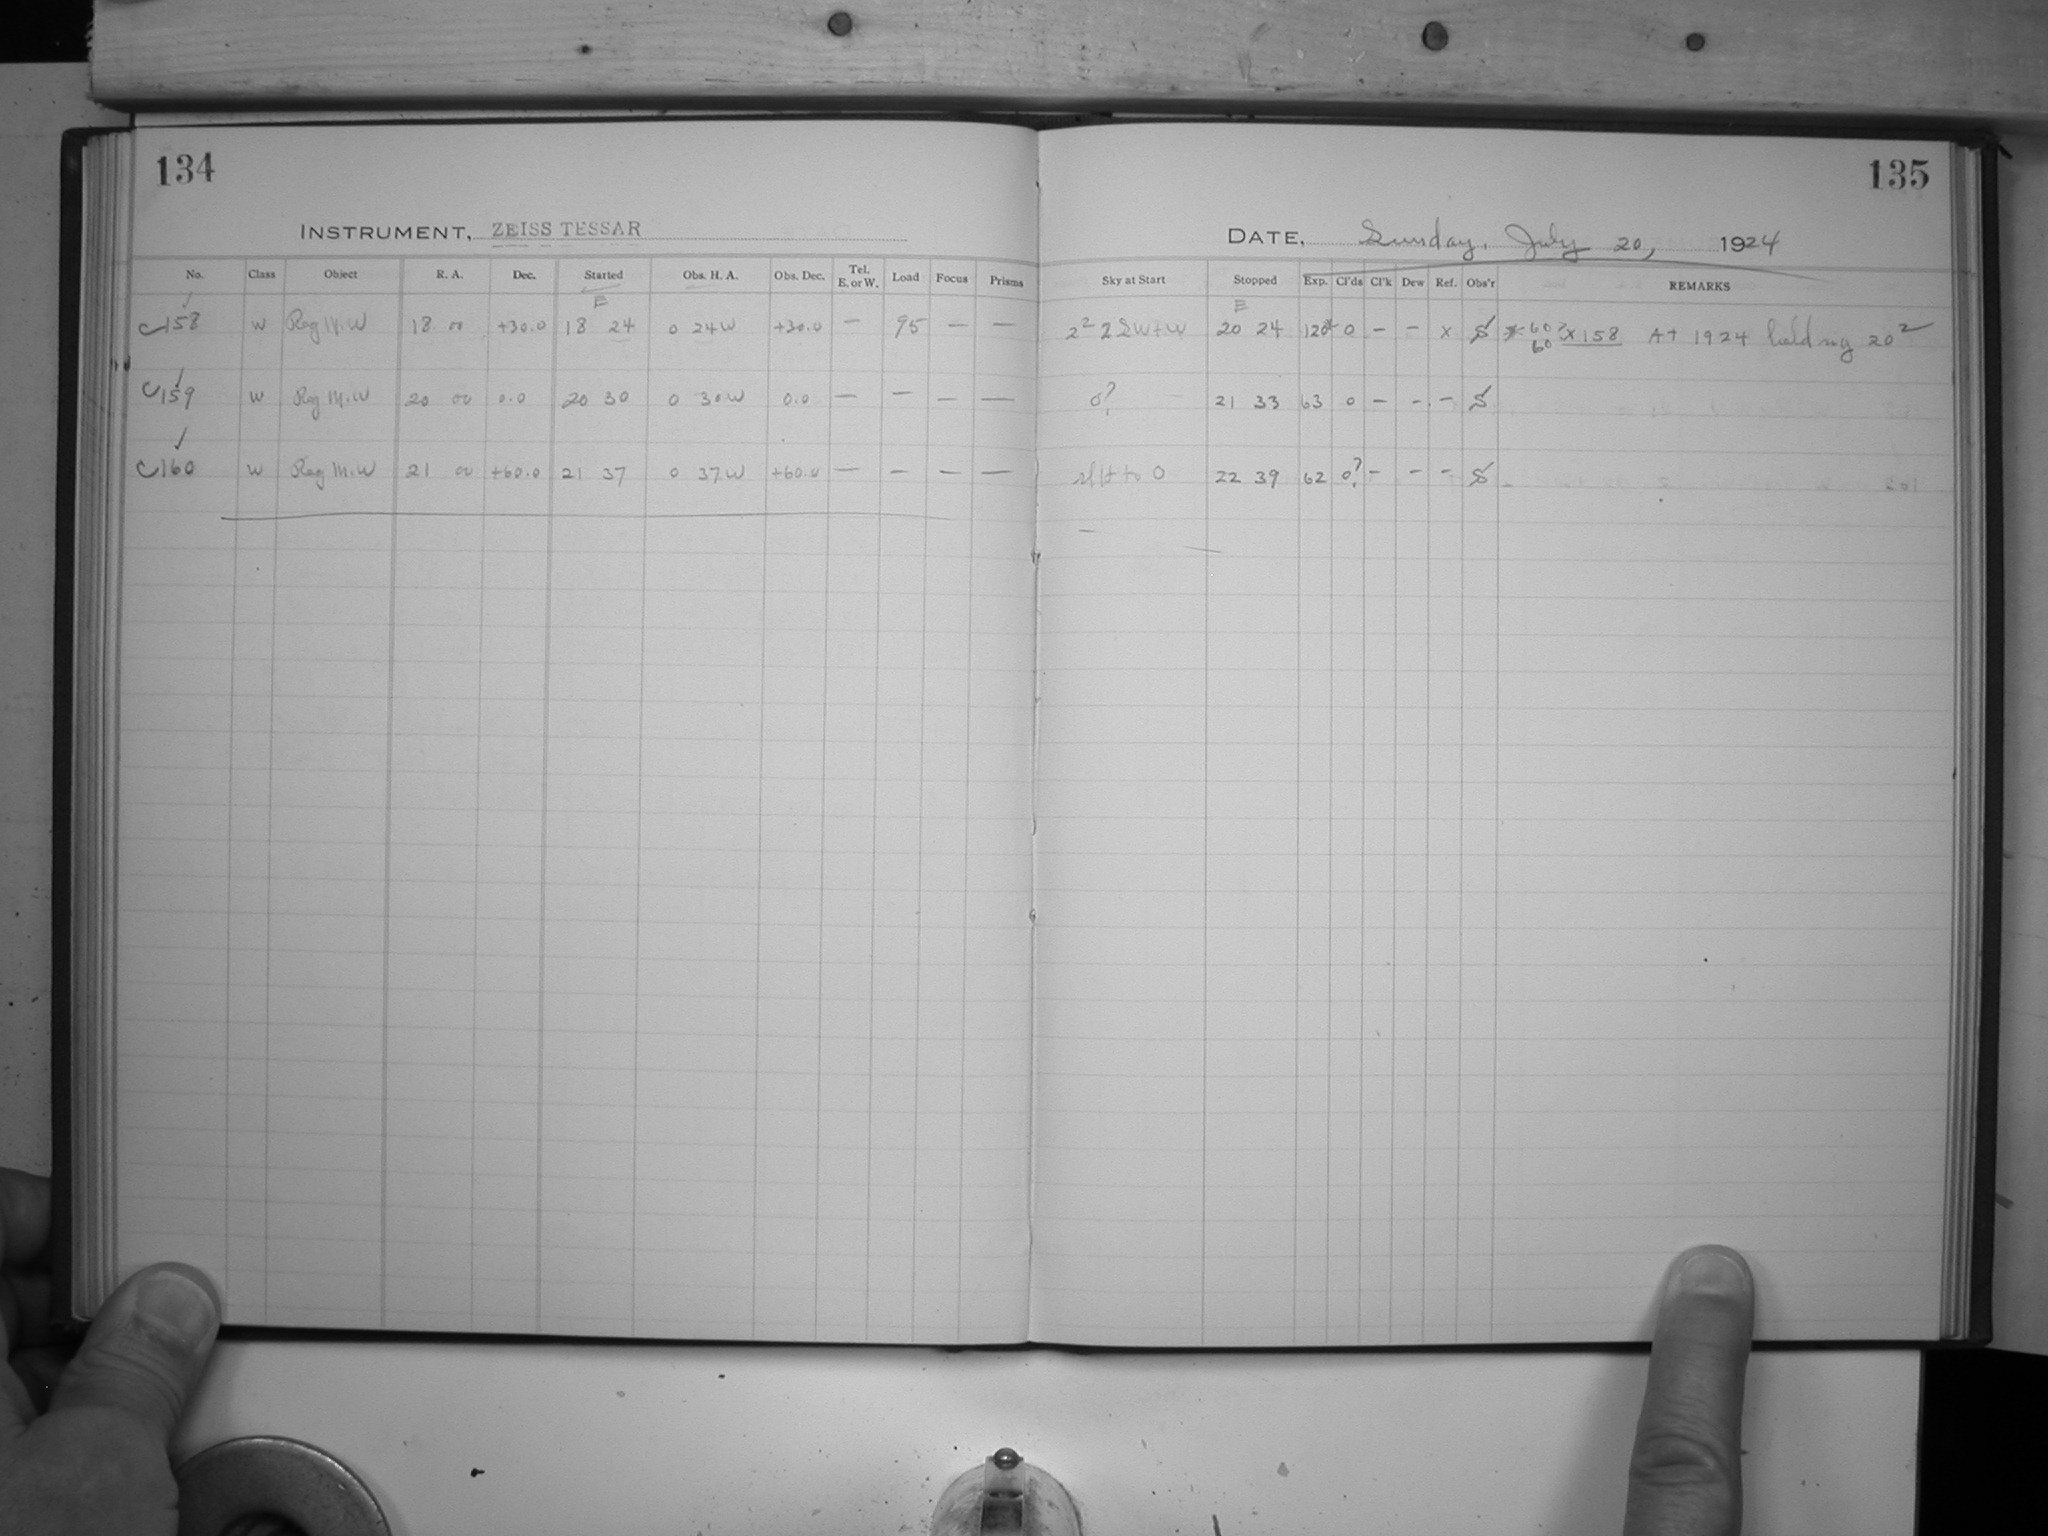 134
135
INSTRUMENT, ZEISS TESSAR
DATE, Sunday, July 20, 1924
No. Class Object R. A. Dec. Started Obs. H. A. Obs. Dec. Tel. E. or W. Load Focus Prisms Sky at Start Stopped Exp. Cl'ds Cl'k Dew Ref. Obs'r REMARKS
E E
C158 W Reg M.W 18 00 +30.0 18 24 0 24 W +30.0 — 95 — — 20 24 120* 0 — — x S * 60? 60 x 158 At 1924 20²
C159 W Reg M.W 20 00 0.0 20 30 0 30.W 0.0 — — — — 0? 21 33 63 0 — — — S
C160 W Reg M.W 21 00 +60.0 21 37 0 37.W +60.0 — — — — to 0 22 39 62 0? — — — S